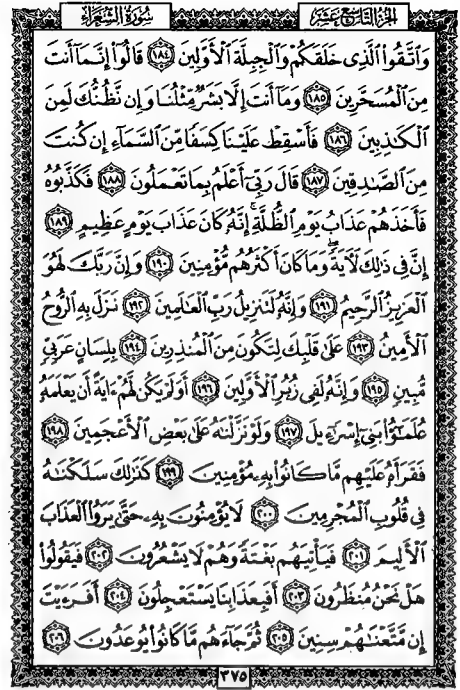 الجزء التاسع عشر سورة الشعراء
وَٱتَّقُوا۟ ٱلَّذِى خَلَقَكُمْ وَٱلْجِبِلَّةَ ٱلْأَوَّلِينَ ١٨٤ قَالُوٓا۟ إِنَّمَآ أَنتَ
مِنَ ٱلْمُسَحَّرِينَ ١٨٥ وَمَآ أَنتَ إِلَّا بَشَرٌ مِّثْلُنَا وَإِن نَّظُنُّكَ لَمِنَ
ٱلْكَـٰذِبِينَ ١٨٦ فَأَسْقِطْ عَلَيْنَا كِسَفًا مِّنَ ٱلسَّمَآءِ إِن كُنتَ
مِنَ ٱلصَّـٰدِقِينَ ١٨٧ قَالَ رَبِّىٓ أَعْلَمُ بِمَا تَعْمَلُونَ ١٨٨ فَكَذَّبُوهُ
فَأَخَذَهُمْ عَذَابُ يَوْمِ ٱلظُّلَّةِ ۚ إِنَّهُۥ كَانَ عَذَابَ يَوْمٍ عَظِيمٍ ١٨٩
إِنَّ فِى ذَٰلِكَ لَـَٔايَةً ۖ وَمَا كَانَ أَكْثَرُهُم مُّؤْمِنِينَ ١٩٠ وَإِنَّ رَبَّكَ لَهُوَ
ٱلْعَزِيزُ ٱلرَّحِيمُ ١٩١ وَإِنَّهُۥ لَتَنزِيلُ رَبِّ ٱلْعَـٰلَمِينَ ١٩٢ نَزَلَ بِهِ ٱلرُّوحُ
ٱلْأَمِينُ ١٩٣ عَلَىٰ قَلْبِكَ لِتَكُونَ مِنَ ٱلْمُنذِرِينَ ١٩٤ بِلِسَانٍ عَرَبِىٍّ
مُّبِينٍ ١٩٥ وَإِنَّهُۥ لَفِى زُبُرِ ٱلْأَوَّلِينَ ١٩٦ أَوَلَمْ يَكُن لَّهُمْ ءَايَةً أَن يَعْلَمَهُۥ
عُلَمَـٰٓؤُا۟ بَنِىٓ إِسْرَٰٓءِيلَ ١٩٧ وَلَوْ نَزَّلْنَـٰهُ عَلَىٰ بَعْضِ ٱلْأَعْجَمِينَ ١٩٨
فَقَرَأَهُۥ عَلَيْهِم مَّا كَانُوا۟ بِهِۦ مُؤْمِنِينَ ١٩٩ كَذَٰلِكَ سَلَكْنَـٰهُ
فِى قُلُوبِ ٱلْمُجْرِمِينَ ٢٠٠ لَا يُؤْمِنُونَ بِهِۦ حَتَّىٰ يَرَوُا۟ ٱلْعَذَابَ
ٱلْأَلِيمَ ٢٠١ فَيَأْتِيَهُم بَغْتَةً وَهُمْ لَا يَشْعُرُونَ ٢٠٢ فَيَقُولُوا۟
هَلْ نَحْنُ مُنظَرُونَ ٢٠٣ أَفَبِعَذَابِنَا يَسْتَعْجِلُونَ ٢٠٤ أَفَرَءَيْتَ
إِن مَّتَّعْنَـٰهُمْ سِنِينَ ٢٠٥ ثُمَّ جَآءَهُم مَّا كَانُوا۟ يُوعَدُونَ ٢٠٦
٣٧٥